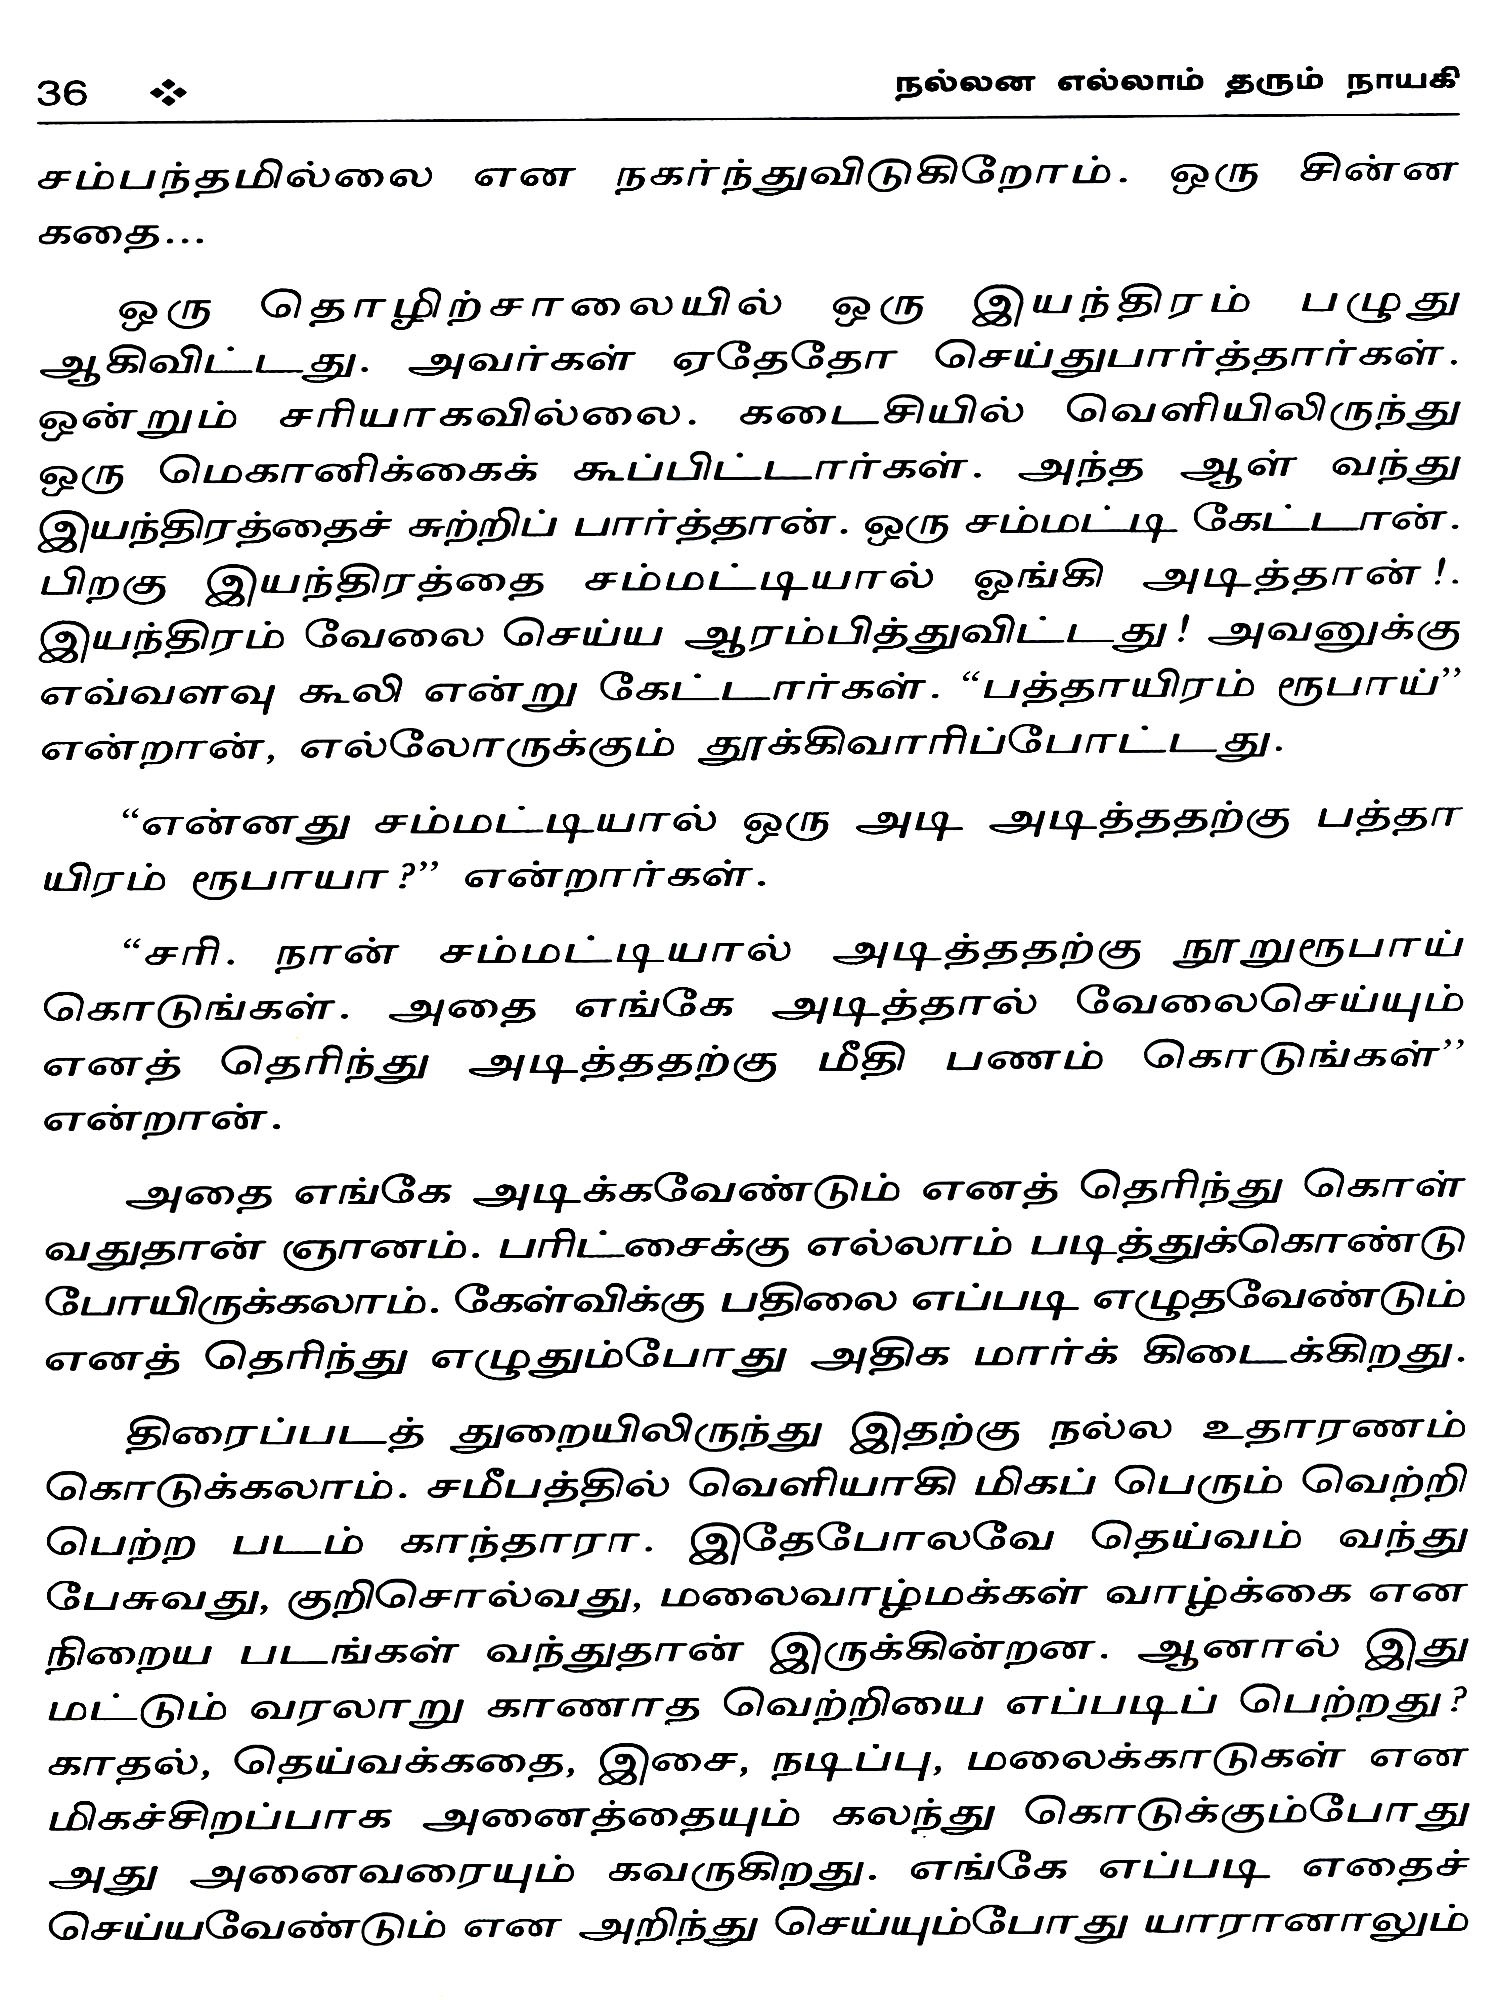 36 ❖ நல்லன எல்லாம் தரும் நாயகி
சம்பந்தமில்லை என நகர்ந்துவிடுகிறோம். ஒரு சின்ன
கதை...
ஒரு தொழிற்சாலையில் ஒரு இயந்திரம் பழுது
ஆகிவிட்டது. அவர்கள் ஏதேதோ செய்துபார்த்தார்கள்.
ஒன்றும் சரியாகவில்லை. கடைசியில் வெளியிலிருந்து
ஒரு மெகானிக்கைக் கூப்பிட்டார்கள். அந்த ஆள் வந்து
இயந்திரத்தைச் சுற்றிப் பார்த்தான். ஒரு சம்மட்டி கேட்டான்.
பிறகு இயந்திரத்தை சம்மட்டியால் ஓங்கி அடித்தான்!.
இயந்திரம் வேலை செய்ய ஆரம்பித்துவிட்டது! அவனுக்கு
எவ்வளவு கூலி என்று கேட்டார்கள். “பத்தாயிரம் ரூபாய்”
என்றான், எல்லோருக்கும் தூக்கிவாரிப்போட்டது.
“என்னது சம்மட்டியால் ஒரு அடி அடித்ததற்கு பத்தா
யிரம் ரூபாயா?” என்றார்கள்.
“சரி. நான் சம்மட்டியால் அடித்ததற்கு நூறுரூபாய்
கொடுங்கள். அதை எங்கே அடித்தால் வேலைசெய்யும்
எனத் தெரிந்து அடித்ததற்கு மீதி பணம் கொடுங்கள்”
என்றான்.
அதை எங்கே அடிக்கவேண்டும் எனத் தெரிந்து கொள்
வதுதான் ஞானம். பரிட்சைக்கு எல்லாம் படித்துக்கொண்டு
போயிருக்கலாம். கேள்விக்கு பதிலை எப்படி எழுதவேண்டும்
எனத் தெரிந்து எழுதும்போது அதிக மார்க் கிடைக்கிறது.
திரைப்படத் துறையிலிருந்து இதற்கு நல்ல உதாரணம்
கொடுக்கலாம். சமீபத்தில் வெளியாகி மிகப் பெரும் வெற்றி
பெற்ற படம் காந்தாரா. இதேபோலவே தெய்வம் வந்து
பேசுவது, குறிசொல்வது, மலைவாழ்மக்கள் வாழ்க்கை என
நிறைய படங்கள் வந்துதான் இருக்கின்றன. ஆனால் இது
மட்டும் வரலாறு காணாத வெற்றியை எப்படிப் பெற்றது?
காதல், தெய்வக்கதை, இசை, நடிப்பு, மலைக்காடுகள் என
மிகச்சிறப்பாக அனைத்தையும் கலந்து கொடுக்கும்போது
அது அனைவரையும் கவருகிறது. எங்கே எப்படி எதைச்
செய்யவேண்டும் என அறிந்து செய்யும்போது யாரானாலும்